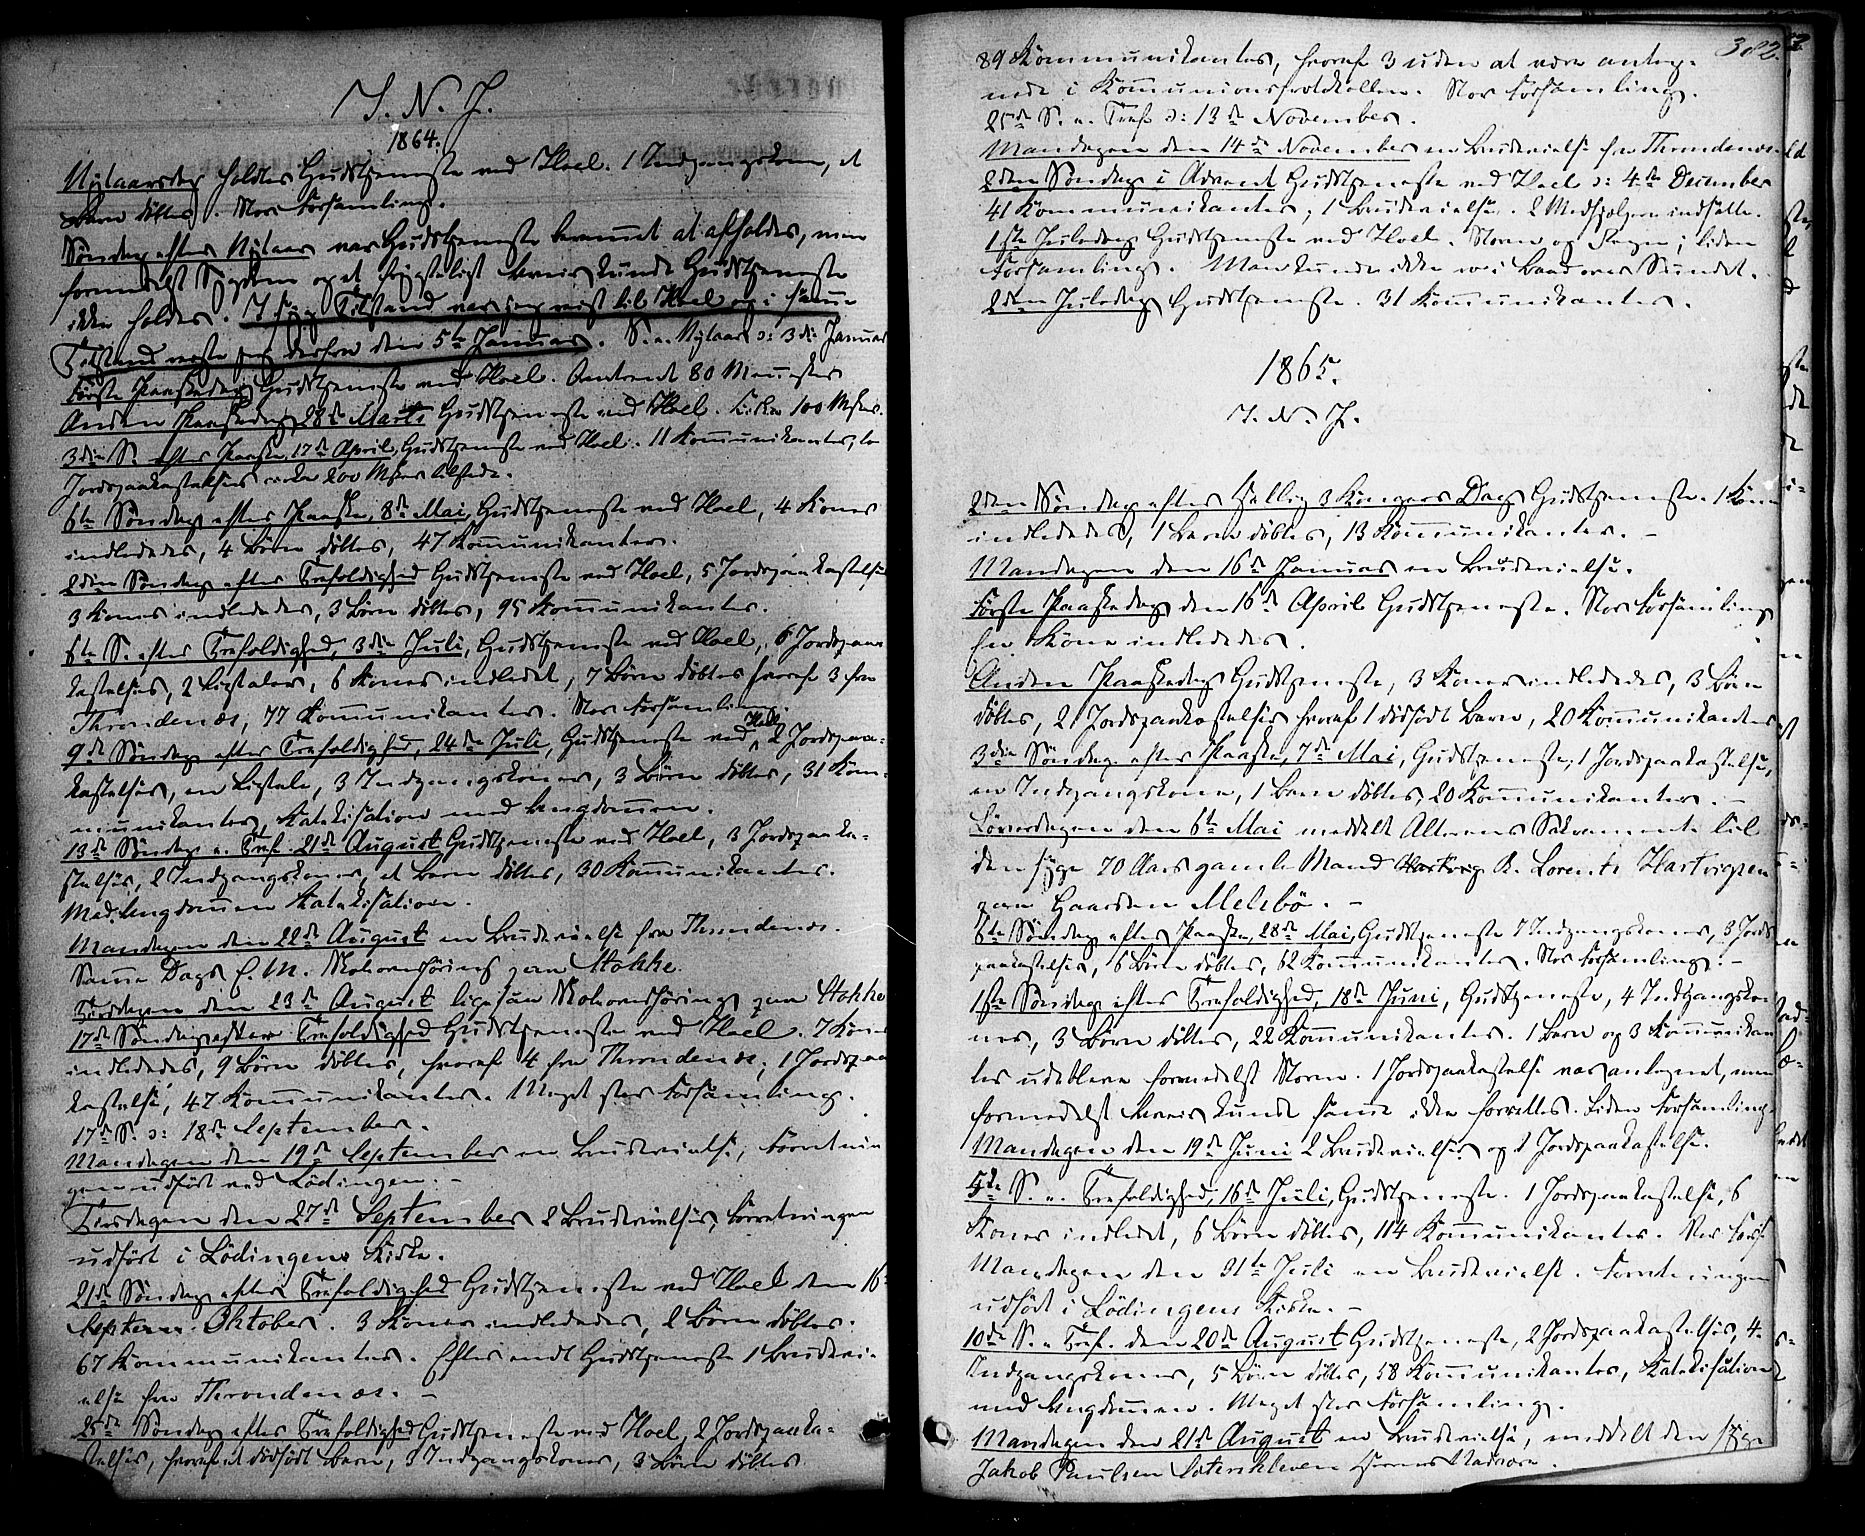 I. N. J.
1864.
Nytaarsdag holdtes Gudstjeneste ved Hol. 1 Indgangskone, et
Barn döbtes. Stor Forsamling.
Söndag efter Nytaar var Gudstjeneste berammet at afholdes, men
formedelst Sygdom og et frygteligt Veir kunde Gudstjeneste
ikke holdes. I syg Tilstand var jeg reist til Hol og i samme
Tilstand reiste jeg derfra den 5te Januar. S. e. Nytaar ɔ: 3die Januar
Förste Paaskedag Gudstjeneste ved Hol. Omtrent 80 Mennesker
Anden Paaskedag 28de Marts Gudstjeneste ved Hol. Cirka 100 Msker.
3die S. efter Paaske, 17de April, Gudstjeneste ved Hol. 11 Kommunikanter, to
Jordspaakastelser cirka 200 Msker tilstede.
6te Söndag efter Paaske, 8de Mai, Gudstjeneste ved Hol, 4 Koner
indlededes, 4 Börn döbtes, 47 Kommunikanter.
2den Söndag efter Trefoldighed Gudstjeneste ved Hol, 5 Jordspaakastelser
3 Koner indlededes, 3 Börn döbtes, 95 Kommunikanter.
6te S. efter Trefoldighed, 3die Juli, Gudstjeneste ved Hol, 6 Jordspaa-
kastelser, 2 Ligtaler, 6 Koner indledet, 7 Börn döbtes hvoraf 3 fra
Throndenæs, 77 Kommunikanter. Stor Forsamling.
9de Söndag efter Trefoldighed, 24de Juli, Gudstjeneste ved Hol, 2 Jordspaa-
kastelser, en Ligtale, 3 Indgangskoner, 3 Börn döbtes, 31 Kom-
munikanter, Katekisation med Ungdommen.
13de Söndag e. Tref. 21de August Gudstjeneste ved Hol, 3 Jordspaaka-
stelser, 2 Indgangskoner, et Barn döbtes, 30 Kommunikanter.
Med Ungdommen Katekisation.
Mandagen den 22de August en Brudevielse fra Throndenæs.
Samme Dags E. M. Skolendhöring paa Stokke.
Tirsdagen den 23de August ligesaa paa Stokke
17de Söndag efter Trefoldighed Gudstjeneste ved Hol. 7 Koner
indlededes, 9 Börn döbtes, hvoraf 4 fra Throndenæs; 1 Jordspaa
kastelse, 47 Kommunikanter. Meget stor Forsamling.
17de S. ɔ: 18de September.
Mandagen den 19de September en Brudevielse, Forretnin
gen udfört ved Lödingen. -
Tirsdagen den 27de September 2 Brudevielser, Forretningen
udfört i Lödingens Kirke.
21de Söndag efter Trefoldighed Gudstjeneste ved Hol den 16
Septem. Oktober. 3 Koner indlededes, 2 Börn döbtes.
67 Kommunikanter. Efter endt Gudstjeneste 1 Brudevi-
else fra Throndenæs. -
25de Söndag efter Trefoldighed Gudstjeneste ved Hol, 2 Jordspaaka-
stelser, hvoraf et dödfödt Barn, 3 Indgangskoner, 3 Börn döbtes
382.
89 Kommunikanter, hvoraf 3 uden at være anteg-
nede i Kommunionsprotokollen. Stor Forsamling.
25de S. e. Tref ɔ: 13de November.
Mandagen den 14de November en Brudevielse fra Throndenæs
2den Söndag i Advent Gudstjeneste ved Hol ɔ: 4de December
41 Kommunikanter, 1 Brudevielse. 2 Medhjelpere indsatte.
1ste Juledag Gudstjeneste ved Hol. Storm og Regn; liden
Forsamling. Man kunde ikke ro i Baad over Sundet.
2den Juledag Gudstjeneste. 31 Kommunikanter.
1865.
I. N. J.
2den Söndag efter Hellig 3 Kongers Dag Gudstjeneste. 1 Kone
indlededes, 1 Barn döbtes, 13 Kommunikanter. -
Mandagen den 16de Januar en Brudevielse.
Förste Paaskedag den 16de April Gudstjeneste. Stor Forsamling
En Kone indlededes.
Anden Paaskedag Gudstjeneste, 3 Koner indlededes, 3 Börn
döbtes, 2 Jordspaakastelser hvoraf 1 dödfödt Barn, 20 Kommunikanter
3die Söndag efter Paaske, 7de Mai, Gudstjeneste, 1 Jordspaakastelse,
en Indgangskone, 1 Barn döbtes, 20 Kommunikanter. -
Löverdagen den 6te Mai meddelt Alterens Sakramente til
den syge 70 Aars gamle Mand Hartvig R. Lorents Hartvigsen
paa Gaarden Melebö. -
6te Söndag efter Paaske, 28de Mai, Gudstjeneste 7 Indgangskoner, 3 Jords
paakastelser, 6 Börn döbtes, 62 Kommunikanter. Stor Forsamling. -
1ste Söndag efter Trefoldighed, 18de Juni, Gudstjeneste, 4 Indgangsko
ner, 3 Börn döbtes, 22 Kommunikanter. 1 Barn og 3 Kommunikan
ter udebleve formedelst Storm. 1 Jordspaakastelse var antegnet, men
formedelst Veir kunde samme ikke forrettes. Liden Forsamling.
Mandagen den 19de Juni 2 Brudevielser og 1 Jordspaakastelse.
5te S. e. Trefoldighed, 16de Juli, Gudstjeneste. 1 Jordspaakastelse, 6
Koner indledet, 6 Börn döbtes, 114 Kommunikanter. Stor Fors.
Mandagen den 31te Juli en Brudevielse. Forretningen
udfört i Lödingens Kirke. -
10de S. e. Tref. den 20de August Gudstjeneste, 2 Jordspaakastelser, 4
Indgangskoner, 5 Börn döbtes, 58 Kommunikanter, Katekisation
med Ungdommen. Meget stor Forsamling.
Mandagen den 21de August en Brudevielse, meddelt den syge
Jakob Paulsen Nadvere.